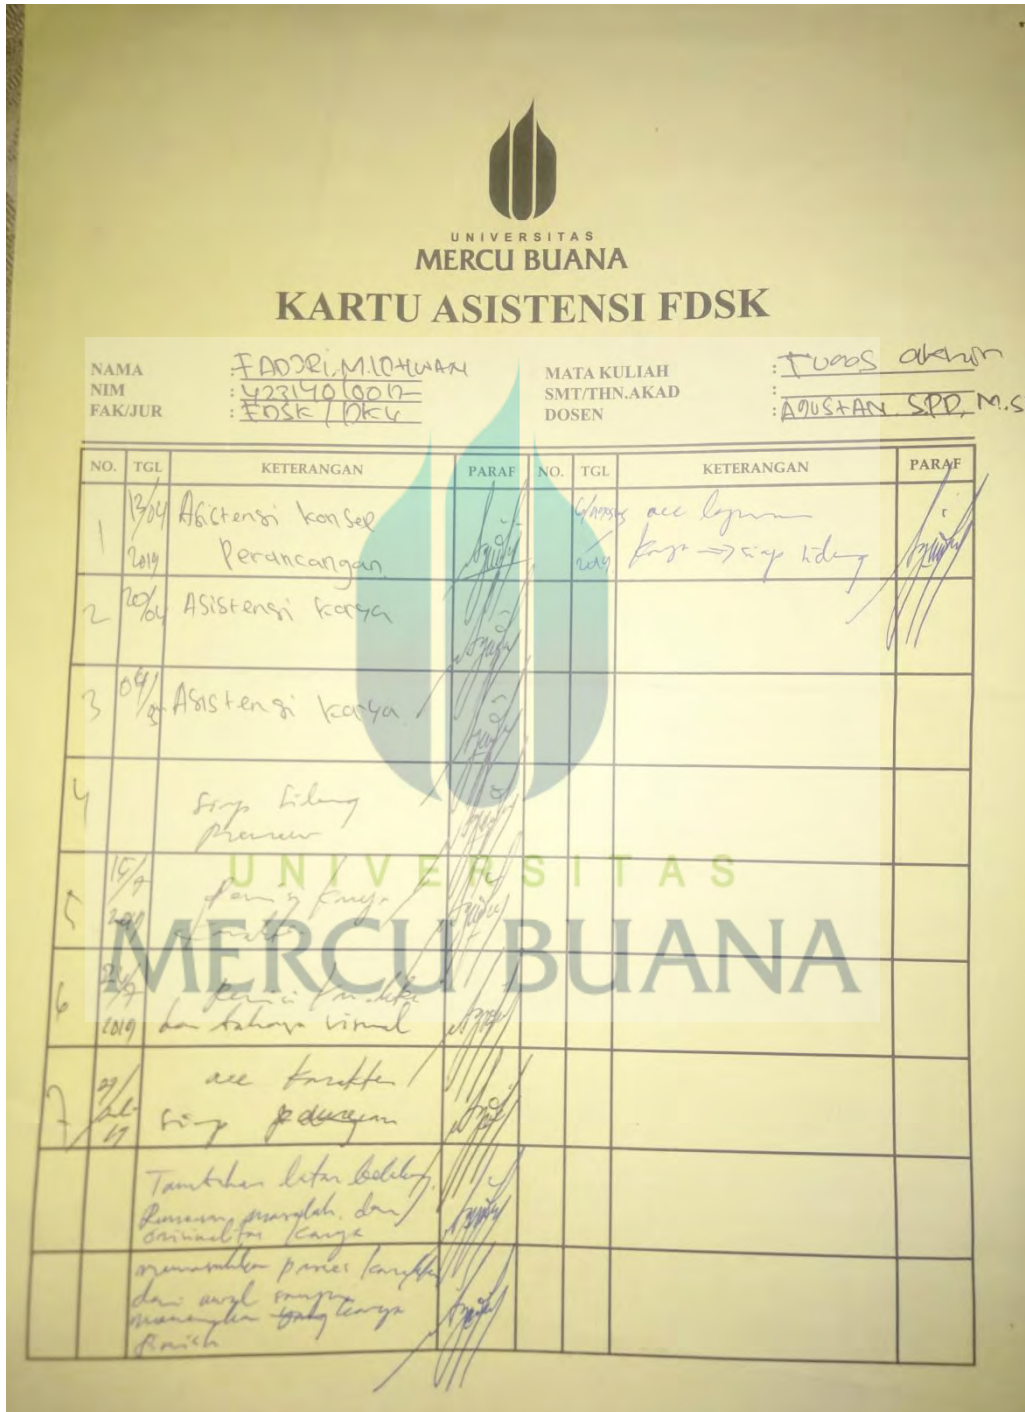 UNIVERSITAS
MERCU BUANA
KARTU ASISTENSI FDSK
NAMA : FADJRI.M.ICHWAN
NIM : 42314010012
FAK/JUR : FDSK / DKV
MATA KULIAH : Tugas akhir
SMT/THN.AKAD :
DOSEN : AGUSTAN. SPD, M.S
NO. TGL KETERANGAN PARAF NO. TGL KETERANGAN PARAF
1 13/04 Asistensi konsep
2019 Perancangan
2 20/04 Asistensi karya
3 04/ Asistensi karya
4 siap sidang
5 15/7
2019
6
2019 dan bahasa visual
7 29/ acc karakter
siap
Tambahan latar belakang,
Rumusan masalah, dan
orisinalitas karya
memasukkan proses karakter
dari awal sampai
karya
finish
2019 karya => siap sidang
UNIVERSITAS
MERCU BUANA